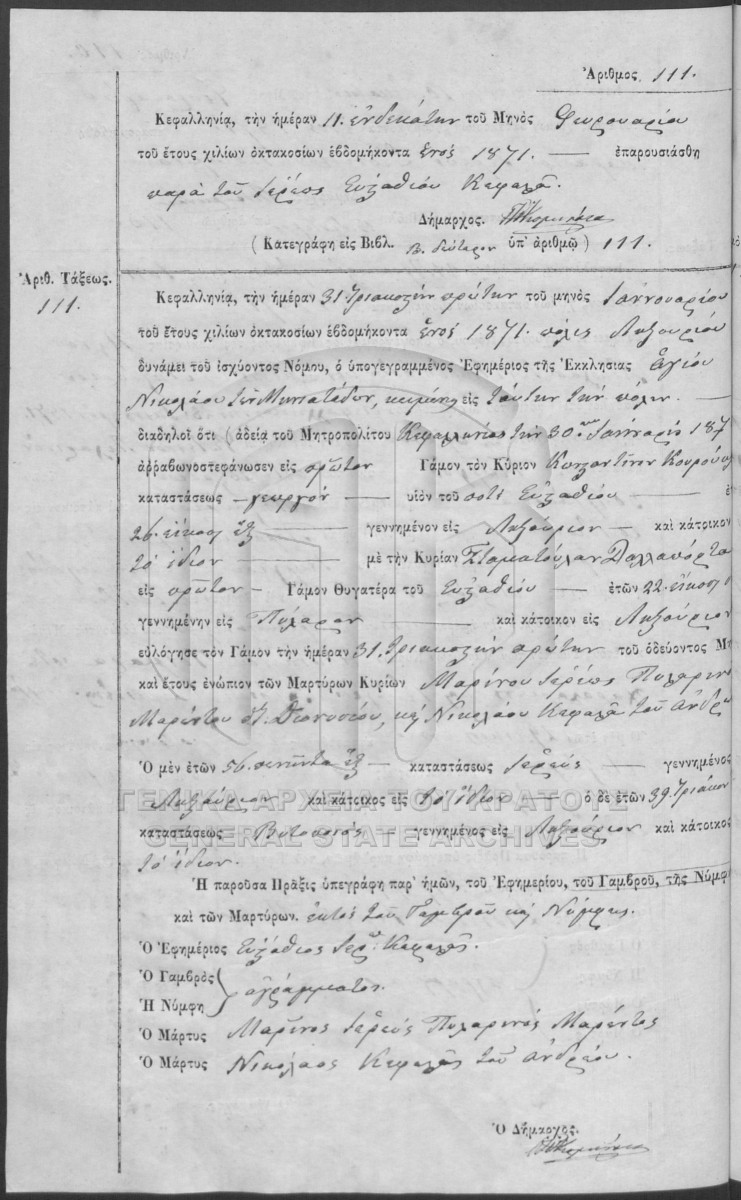 Ἀριθμος 111.
Κεφαλληνίᾳ, τὴν ἡμέραν 11. ἑνδεκάτην τοῦ Μηνὸς Φευρουαρίου
τοῦ ἔτους χιλίων ὀκτακοσίων ἑβδομήκοντα ἑνός 1871. — ἐπαρουσιάσθη
παρὰ τοῦ ἱερέως Εὐσταθίου Κεφαλᾶ.
Δήμαρχος.
( Κατεγράφη εἰς Βιβλ. Β. δεύτερον ὑπ' ἀριθμῷ ) 111.
Ἀριθ. Τάξεως.
111.
Κεφαλληνίᾳ, τὴν ἡμέραν 31 τριακοστὴν πρώτην τοῦ μηνὸς Ἰαννουαρίου
τοῦ ἔτους χιλίων ὀκτακοσίων ἑβδομήκοντα ἑνός 1871. πόλις Ληξουρίου
δυνάμει τοῦ ἰσχύοντος Νόμου, ὁ ὑπογεγραμμένος Ἐφημέριος τῆς Ἐκκλησιας Ἁγίου
Νικολάου τῶν Μηνιατάδων, κειμένης εἰς ταύτην τὴν πόλιν. —
διαδηλοῖ ὅτι ( ἀδείᾳ τοῦ Μητροπολίτου Κεφαλληνίας τὴν 30 187
ἀῤῥαβωνοστεφάνωσεν εἰς πρῶτον Γάμον τὸν Κύριον Κωνσταντῖνον
καταστάσεως — γεωργοῦ — υἱὸν τοῦ ποτὲ Εὐσταθίου — ἐ
26. εἴκοσι ἓξ — γεννημένον εἰς Ληξούριον — καὶ κάτοικον
τὸ ἴδιον — μὲ τὴν Κυρίαν Σταματούλαν Δαλλαπόρτα
εἰς πρῶτον — Γάμον Θυγατέρα τοῦ Εὐσταθίου — ἐτῶν 22. εἴκοσι
γεννημένην εἰς Πύλαρον — καὶ κάτοικον εἰς Ληξούριον
εὐλόγησε τὸν Γάμον τὴν ἡμέραν 31. τριακοστὴν πρώτην τοῦ ὁδεύοντος Μη
καὶ ἔτους ἐνώπιον τῶν Μαρτύρων Κυρίων Μαρίνου ἱερέως Πυλαρινο
Μαρέντου Διονυσίου, καὶ Νικολάου Κεφαλᾶ τοῦ Ἀνδρ
Ὁ μὲν ἐτῶν 56. πενῆντα ἓξ — καταστάσεως ἱερεύς — γεννημένος
Ληξούριον καὶ κάτοικος εἰς τὸ ἴδιον — ὁ δὲ ἐτῶν 39. τριάκον
καταστάσεως — γεννημένος εἰς Ληξούριον καὶ κάτοικος
τὸ ἴδιον.
Ἡ παροῦσα Πρᾶξις ὑπεγράφη παρ' ἡμῶν, τοῦ Ἐφημερίου, τοῦ Γαμβροῦ, τῆς Νύμφη
καὶ τῶν Μαρτύρων. ἐκτὸς τοῦ Γαμβροῦ καὶ Νύμφης.
Ὁ Ἐφημέριος Εὐστάθιος Ἱερεὺς Κεφαλᾶς.
Ὁ Γαμβρὸς
ἀγράμματοι.
Ἡ Νύμφη
Ὁ Μάρτυς Μαρῖνος ἱερεὺς Πυλαρινὸς Μαρέντος
Ὁ Μάρτυς Νικόλαος Κεφαλᾶς τοῦ Ἀνδρέου.
Ὁ Δήμαρχος.
ΓΕΝΙΚΑ ΑΡΧΕΙΑ ΤΟΥ ΚΡΑΤΟΥΣ
GENERAL STATE ARCHIVES